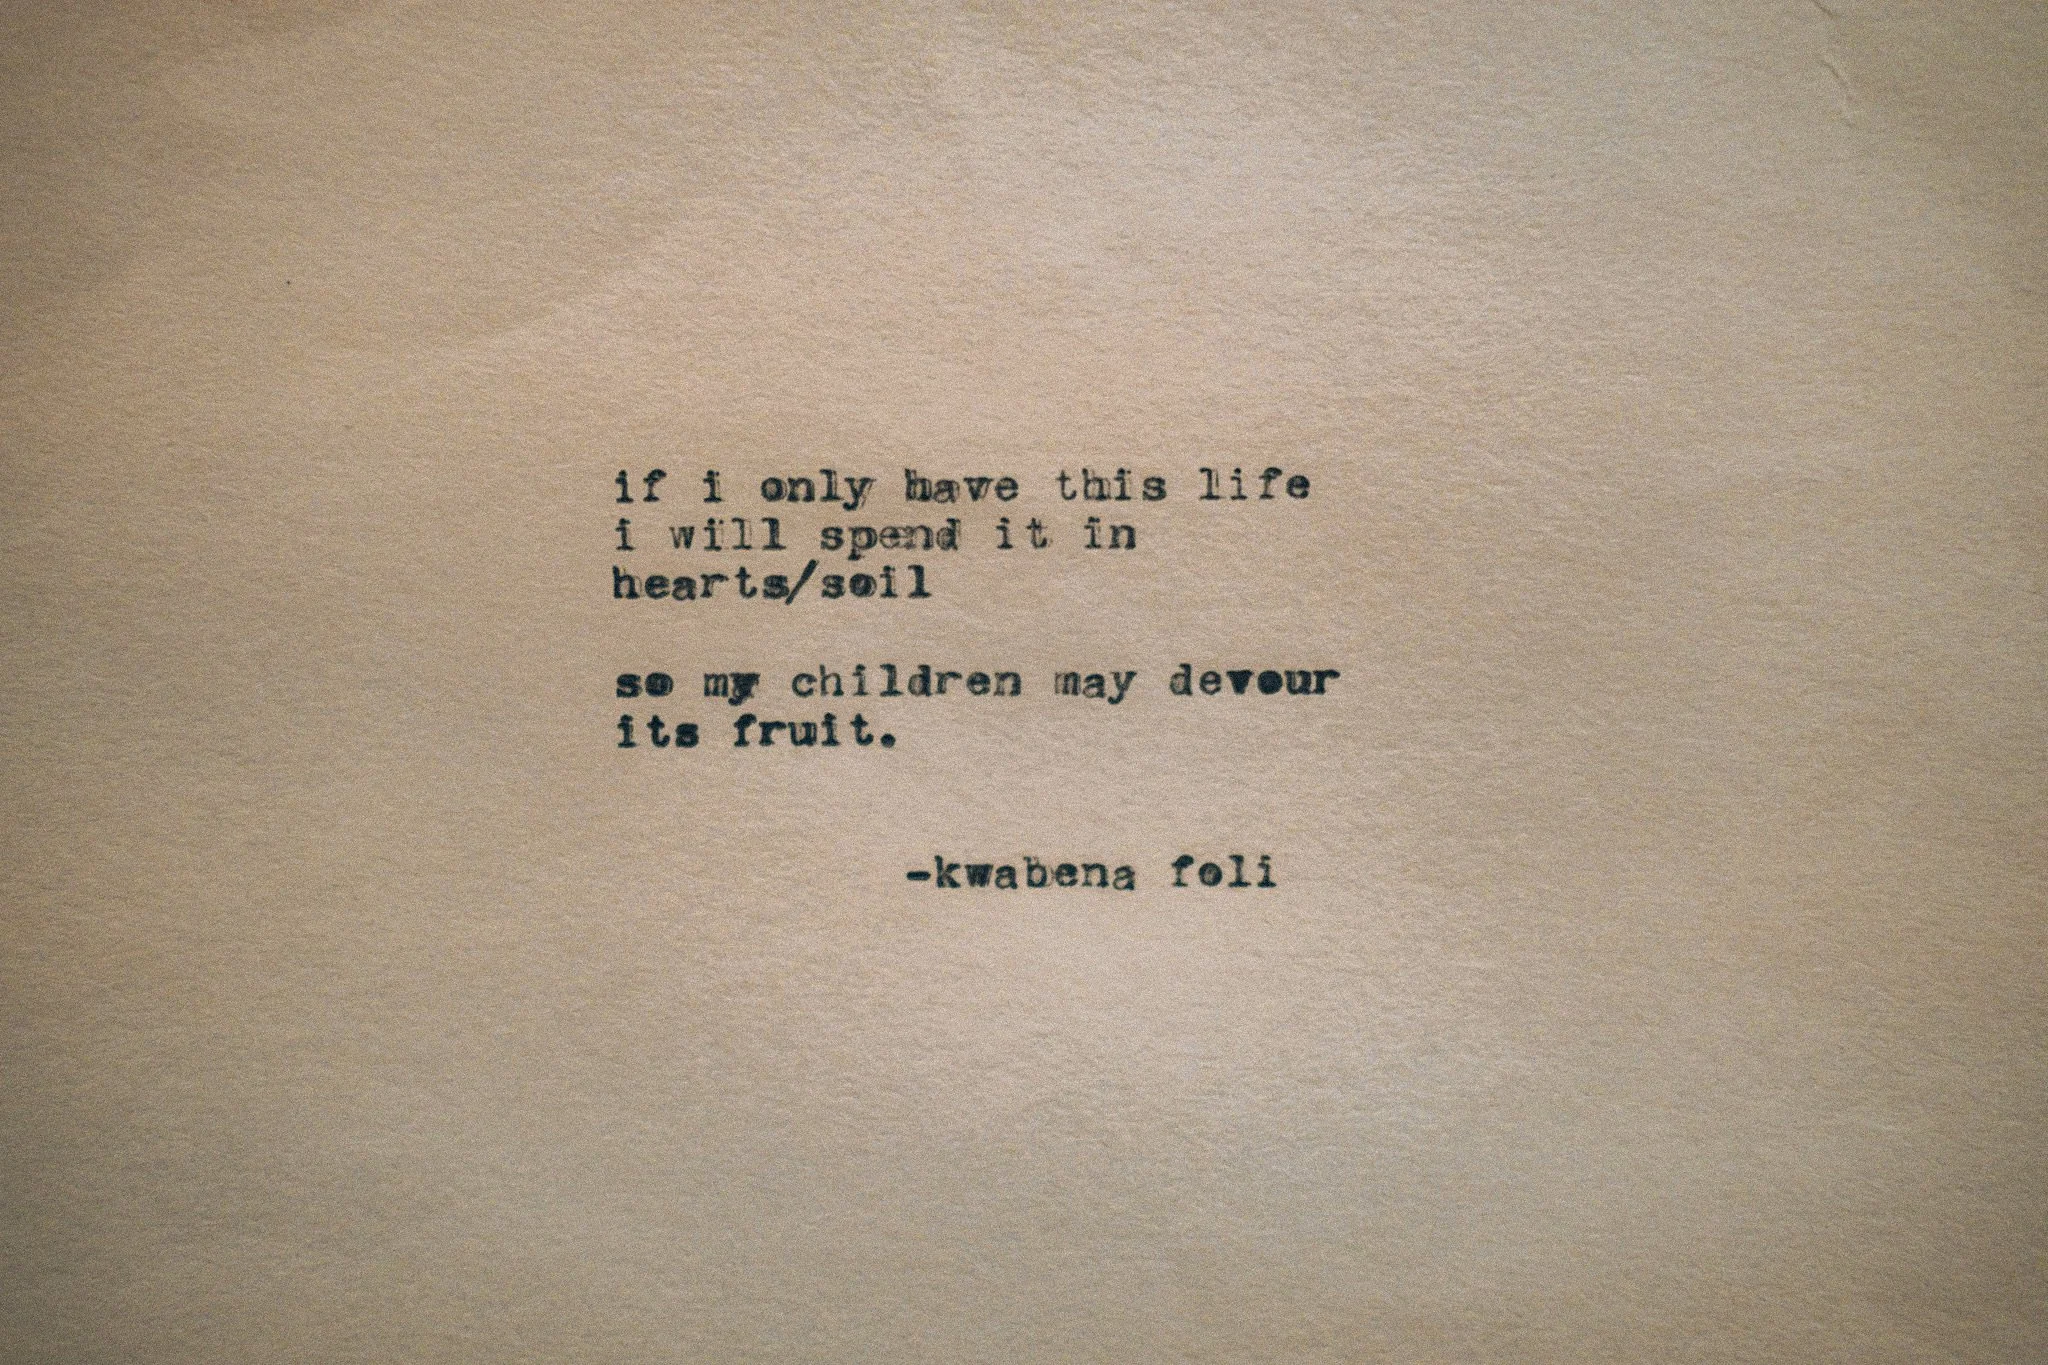 if i only have this life
i will spend it in
hearts/soil
so my children may devour
its fruit.
-kwabena foli